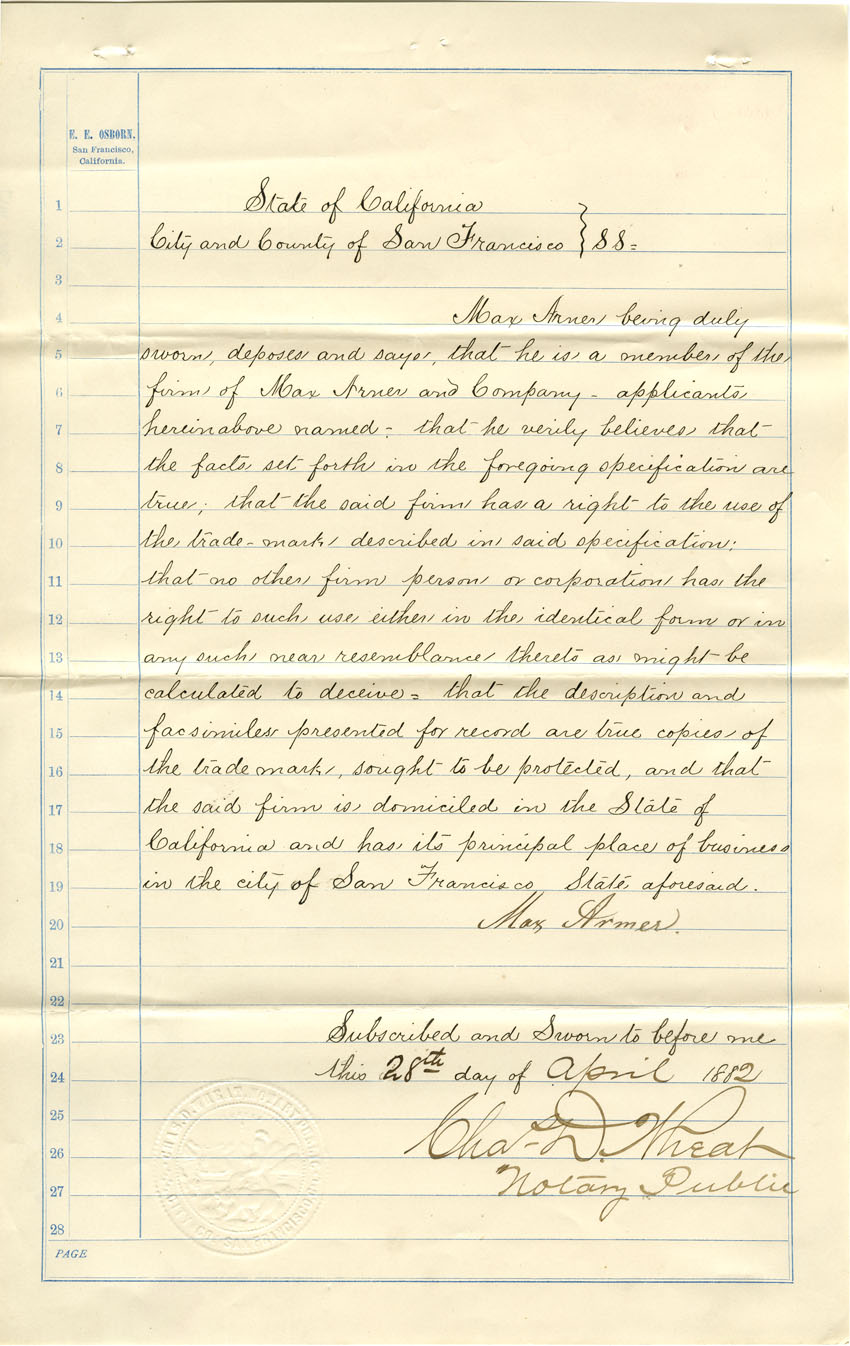 E. E. OSBORN,
San Francisco,
California.
1 State of California
2 City and County of San Francisco } SS=
3
4 Max Armer, being duly
5 sworn, deposes and says, that he is a member of the
6 firm of Max Armer and Company - applicants
7 hereinabove named - that he verily believes that
8 the facts set forth in the foregoing specification are
9 true; that the said firm has a right to the use of
10 the trade-mark described in said specification;
11 that no other firm person or corporation has the
12 right to such use either in the identical form or in
13 any such near resemblance thereto as might be
14 calculated to deceive = that the description and
15 facsimiles presented for record are true copies of
16 the trade mark, sought to be protected, and that
17 the said firm is domiciled in the State of
18 California and has its principal place of business
19 in the city of San Francisco State aforesaid.
20 Max Armer.
21
22
23 Subscribed and Sworn to before me
24 this 28th day of April 1882
25
26 Chas. D. Wheat
27 Notary Public
28
PAGE
CHAS. D. WHEAT, NOTARY PUBLIC
CITY & CO. SAN FRANCISCO